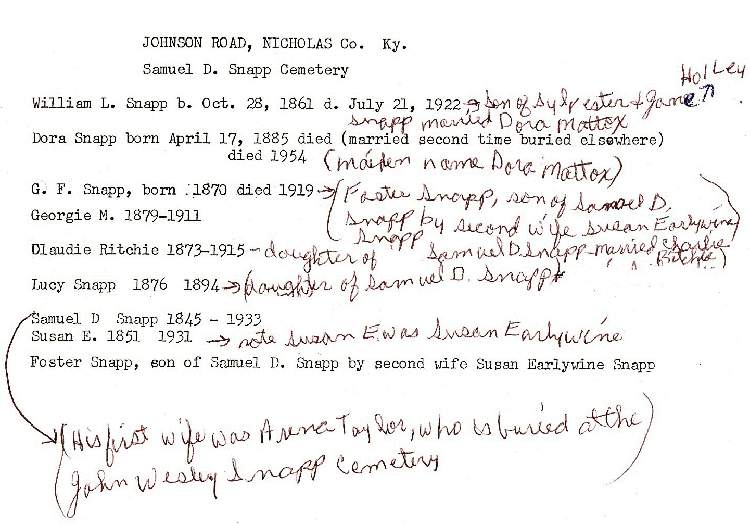 JOHNSON ROAD, NICHOLAS Co. Ky.
Samuel D. Snapp Cemetery
Holley
William L. Snapp b. Oct. 28, 1861 d. July 21, 1922 → son of Sylvester + Jane
Snapp married Dora Mattox
Dora Snapp born April 17, 1885 died (married second time buried elsewhere)
died 1954 (maiden name Dora Mattox)
G. F. Snapp, born 1870 died 1919 → (Foster Snapp, son of Samuel D.
Georgie M. 1879-1911 Snapp by second wife Susan Earlywine
Snapp)
Dlaudie Ritchie 1873-1915 - daughter of Samuel D. Snapp - married Charlie
Ritchie)
Lucy Snapp 1876 1894 → daughter of Samuel D. Snapp
Samuel D Snapp 1845 - 1933
Susan E. 1851 1931 → note Susan E. was Susan Earlywine
Foster Snapp, son of Samuel D. Snapp by second wife Susan Earlywine Snapp
(His first wife was Anna Taylor, who is buried at the
John Wesley Snapp Cemetery)